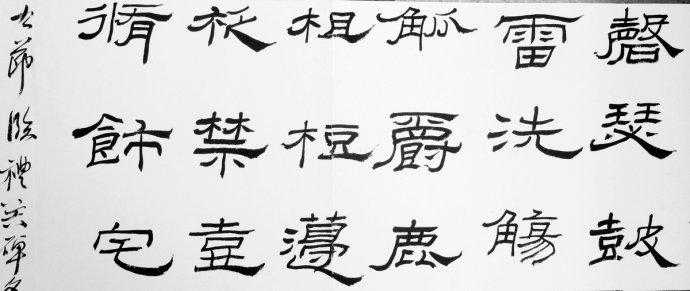 磬瑟鼓
雷洗觴
觚爵鹿
柤梪籩
柉禁壺
脩飾宅
節臨禮器碑